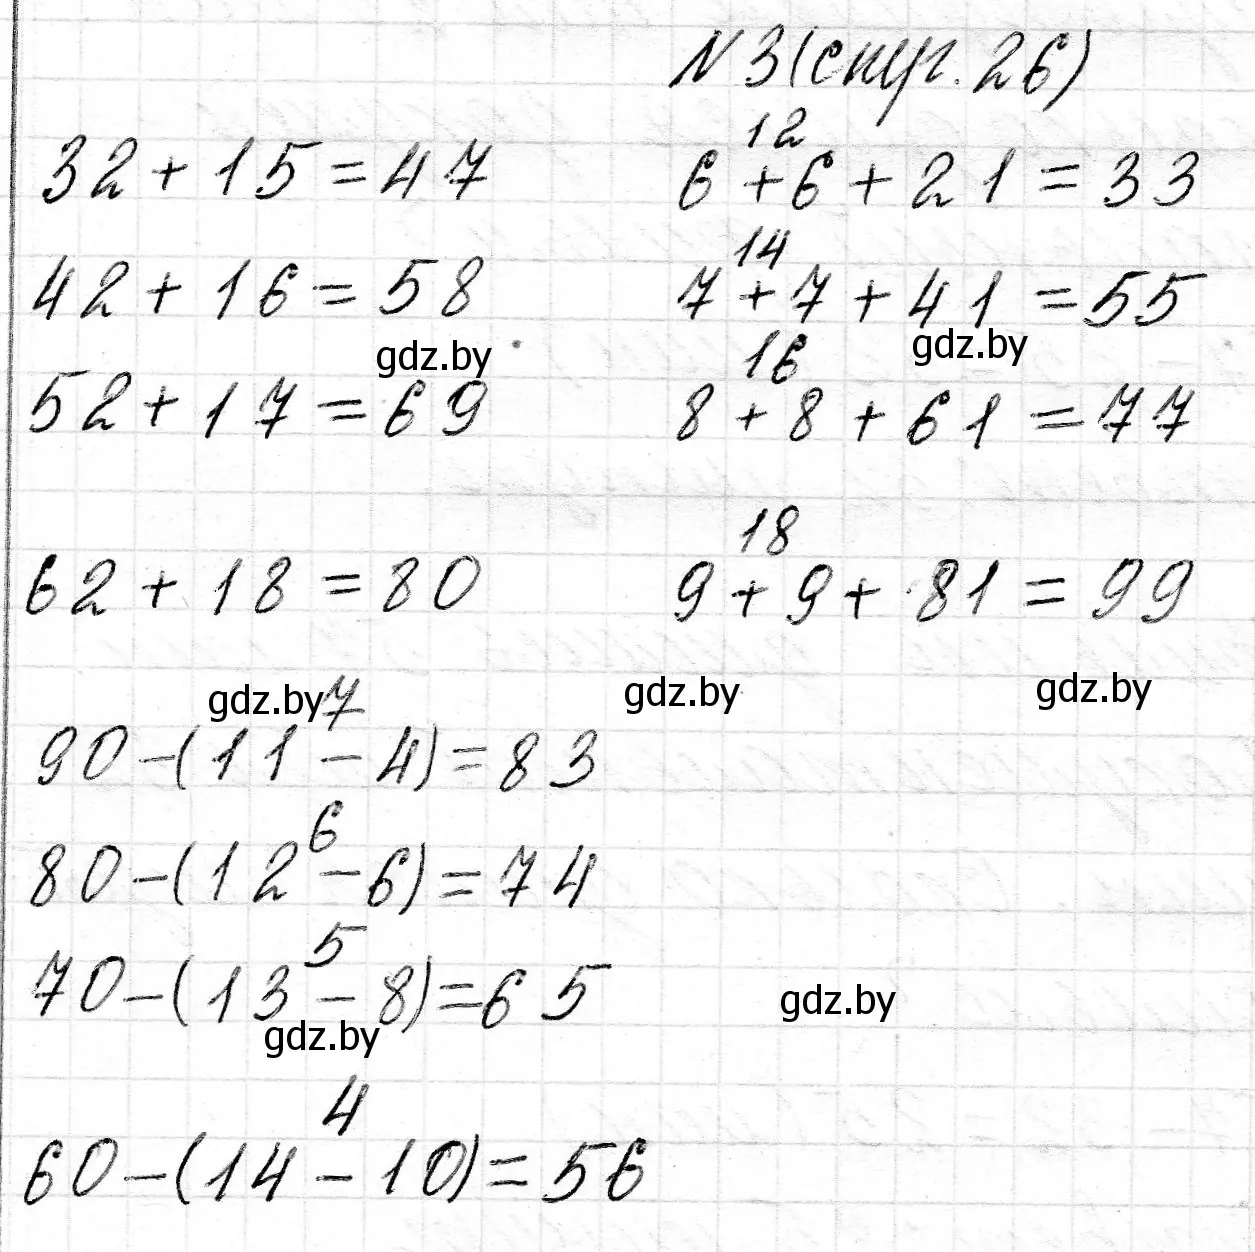 N 3 (стр. 26)
12
32 + 15 = 47 6 + 6 + 21 = 33
14
42 + 16 = 58 7 + 7 + 41 = 55
gdz.by gdz.by
16
52 + 17 = 69 8 + 8 + 61 = 77
18
62 + 18 = 80 9 + 9 + 81 = 99
gdz.by gdz.by gdz.by
7
90 - (11 - 4) = 83
6
80 - (12 - 6) = 74
5
70 - (13 - 8) = 65
gdz.by
gdz.by
4
60 - (14 - 10) = 56